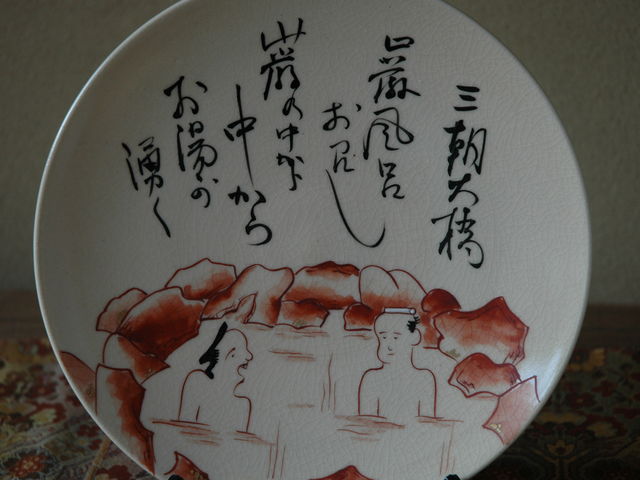 三朝大橋
巌風呂
おわし
巌の中から
中から
お湯が
湧く